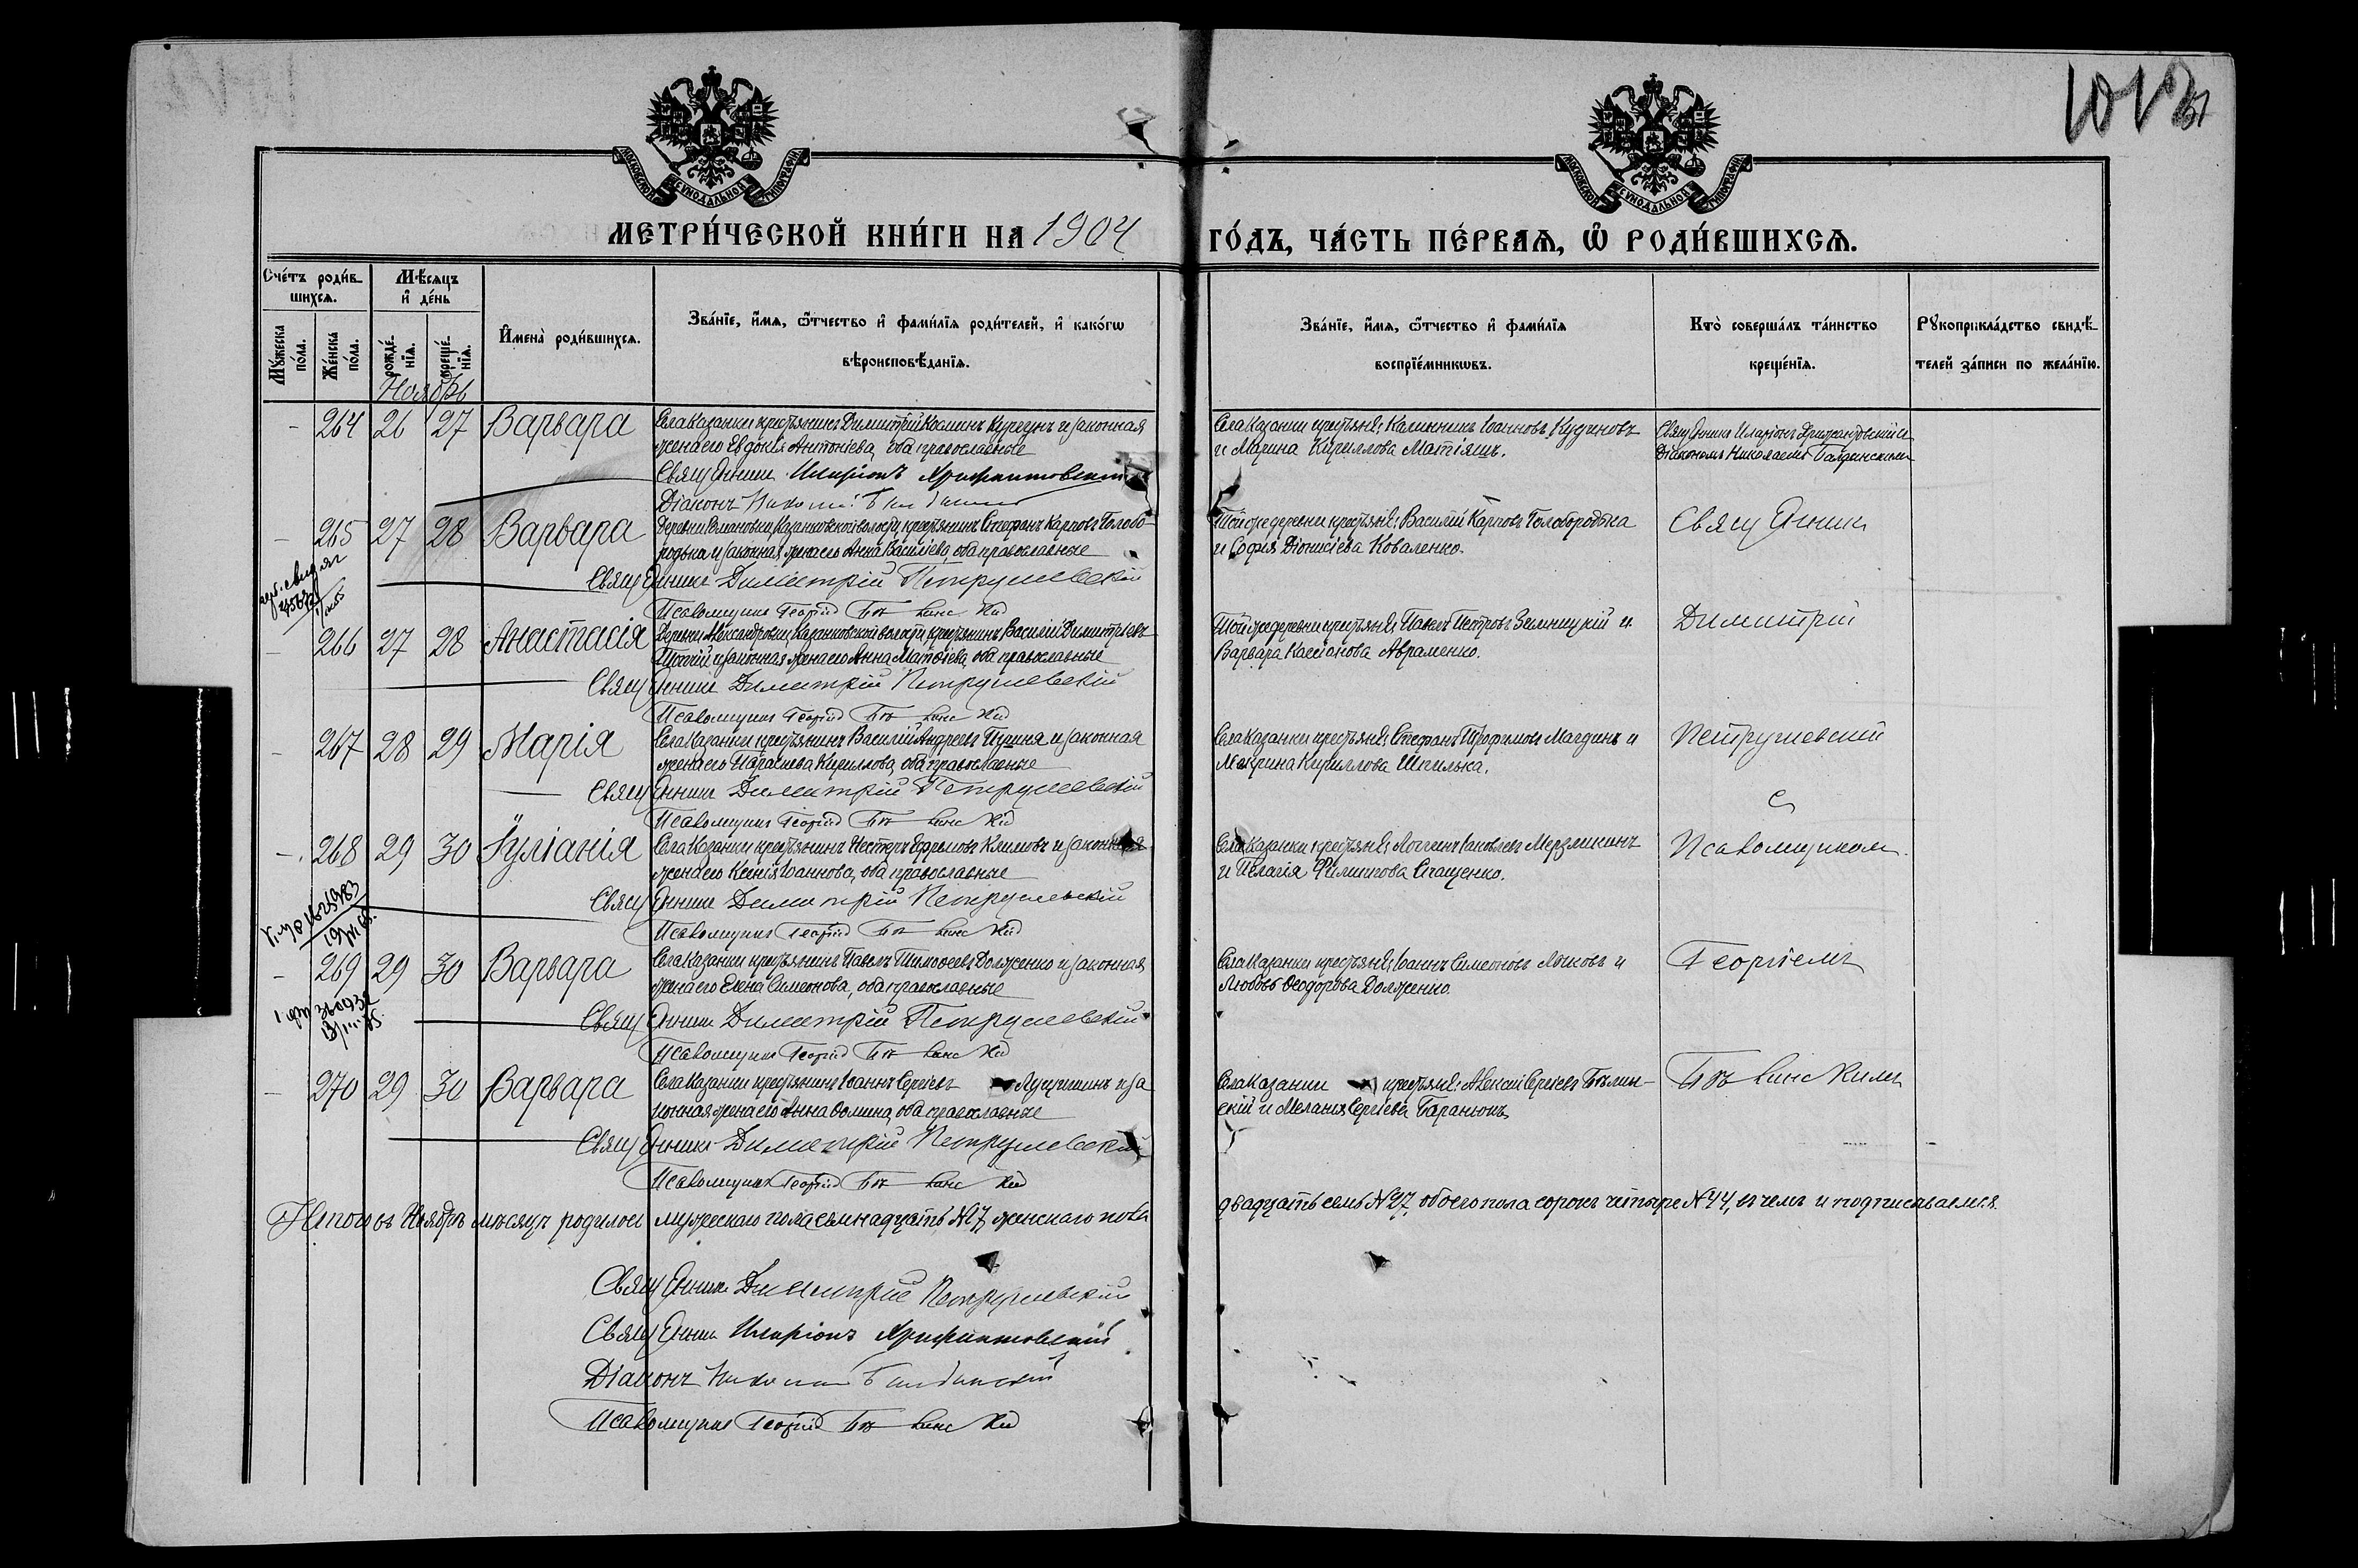 МОСКОВСКОЙ СѴНОДАЛЬНОЙ ТИПОГРАФІИ
МОСКОВСКОЙ СѴНОДАЛЬНОЙ ТИПОГРАФІИ
МЕТРИ́ЧЕСКОЙ КНИ́ГИ НА 1904 ГО́ДЪ, ЧА́СТЬ ПЕ́РВАѦ, Ѡ҆ РОДИ́ВШИХСѦ.
Сче́тъ роди́в-
шихсѧ.
Мѣ́сѧцъ
и҆ де́нь
Мꙋ́жеска
по́ла.
Же́нска
по́ла.
рожде́-
нїѧ.
креще́-
нїѧ.
И҆мена̀ роди́вшихсѧ.
Зва́нїе, и҆́мѧ, ѻ҆́тчество и҆ фами́лїѧ роди́телей, и҆ како́гѡ
вѣроисповѣ́данїѧ.
Зва́нїе, и҆́мѧ, ѻ҆́тчество и҆ фами́лїѧ
воспрїе́мникѡвъ.
Кто̀ соверша́лъ та́инство
креще́нїѧ.
Рꙋкоприкла́дство свидѣ́-
телей за́писи по жела́нїю.
Ноябрь
264 26 27 Варвара
Села Казанки крестьянинъ Димитрій Косминъ и законная
жена его Евдокія Антоніева, оба православные
Священникъ Иларіонъ
Діаконъ
Села Казанки крестьяне: Каллиникъ Іоанновъ Кудиновъ
и Марина Кириллова Матіяшъ.
Священникъ Иларіонъ
Діакономъ Николаемъ
265 27 28 Варвара
Казанковской волости, крестьянинъ Стефанъ Карповъ Голобо-
родька и законная жена его Анна Василіева, оба православные
Священникъ Димитрій Петрушевскій
Псаломщикъ Георгій
Той же деревни крестьяне: Василій Карповъ Голобородька
и Софія Діонисіева Коваленко.
Священникъ
266 27 28 Анастасія
Деревни Александровки, Казанковской волости, крестьянинъ Василій Димитріевъ
и законная жена его Анна Матѳіева, оба православные
Священникъ Димитрій Петрушевскій
Псаломщикъ Георгій
Той же деревни крестьяне: Павелъ Петровъ Зелницкій и
Варвара Кассіанова Авраменко.
Димитрій
267 28 29 Марія
Села Казанки крестьянинъ Василій Андреевъ и законная
жена его Параскева Кириллова, оба православные
Священникъ Димитрій Петрушевскій
Псаломщикъ Георгій
Села Казанки крестьяне: Стефанъ Трофимовъ и
Макрина Кириллова Шпилька.
Петрушевскій
съ
268 29 30 Іуліанія
Села Казанки крестьянинъ Несторъ Ефремовъ Климовъ и законная
жена его Ксенія Іоаннова, оба православные
Священникъ Димитрій Петрушевскій
Псаломщикъ Георгій
Села Казанки крестьяне: Логгинъ Іаковлевъ Мерзликинъ
и Пелагія Филиппова Стащенко.
Псаломщикомъ
269 29 30 Варвара
Села Казанки крестьянинъ Павелъ Тимоѳеевъ Долженко и законная
жена его Елена Симеонова, оба православные
Священникъ Димитрій Петрушевскій
Псаломщикъ Георгій
Села Казанки крестьяне: Іоаннъ Симеоновъ Лыковъ и
Любовь Ѳеодорова Долженко.
Георгіемъ
270 29 30 Варвара
Села Казанки крестьянинъ Іоаннъ Сергіевъ и за
конная жена его Анна Ѳомина, оба православные
Священникъ Димитрій Петрушевскій
Псаломщикъ Георгій
Села Казанки крестьяне: Алексій Сергіевъ Бѣлин-
скій и Меланія Сергіева Баранюкъ
Бѣлинскимъ
Итого въ Ноябрѣ мѣсяцѣ родилось мужескаго пола семнадцать №17, женскаго пола двадцать семь №27, обоего пола сорокъ четыре №44, въ чемъ и подписываемся.
Священникъ Димитрій Петрушевскій
Священникъ Иларіонъ
Діаконъ
Псаломщикъ Георгій